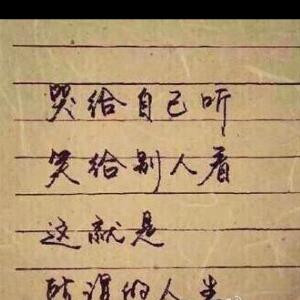 哭给自己听
笑给别人看
这就是
所谓的人生